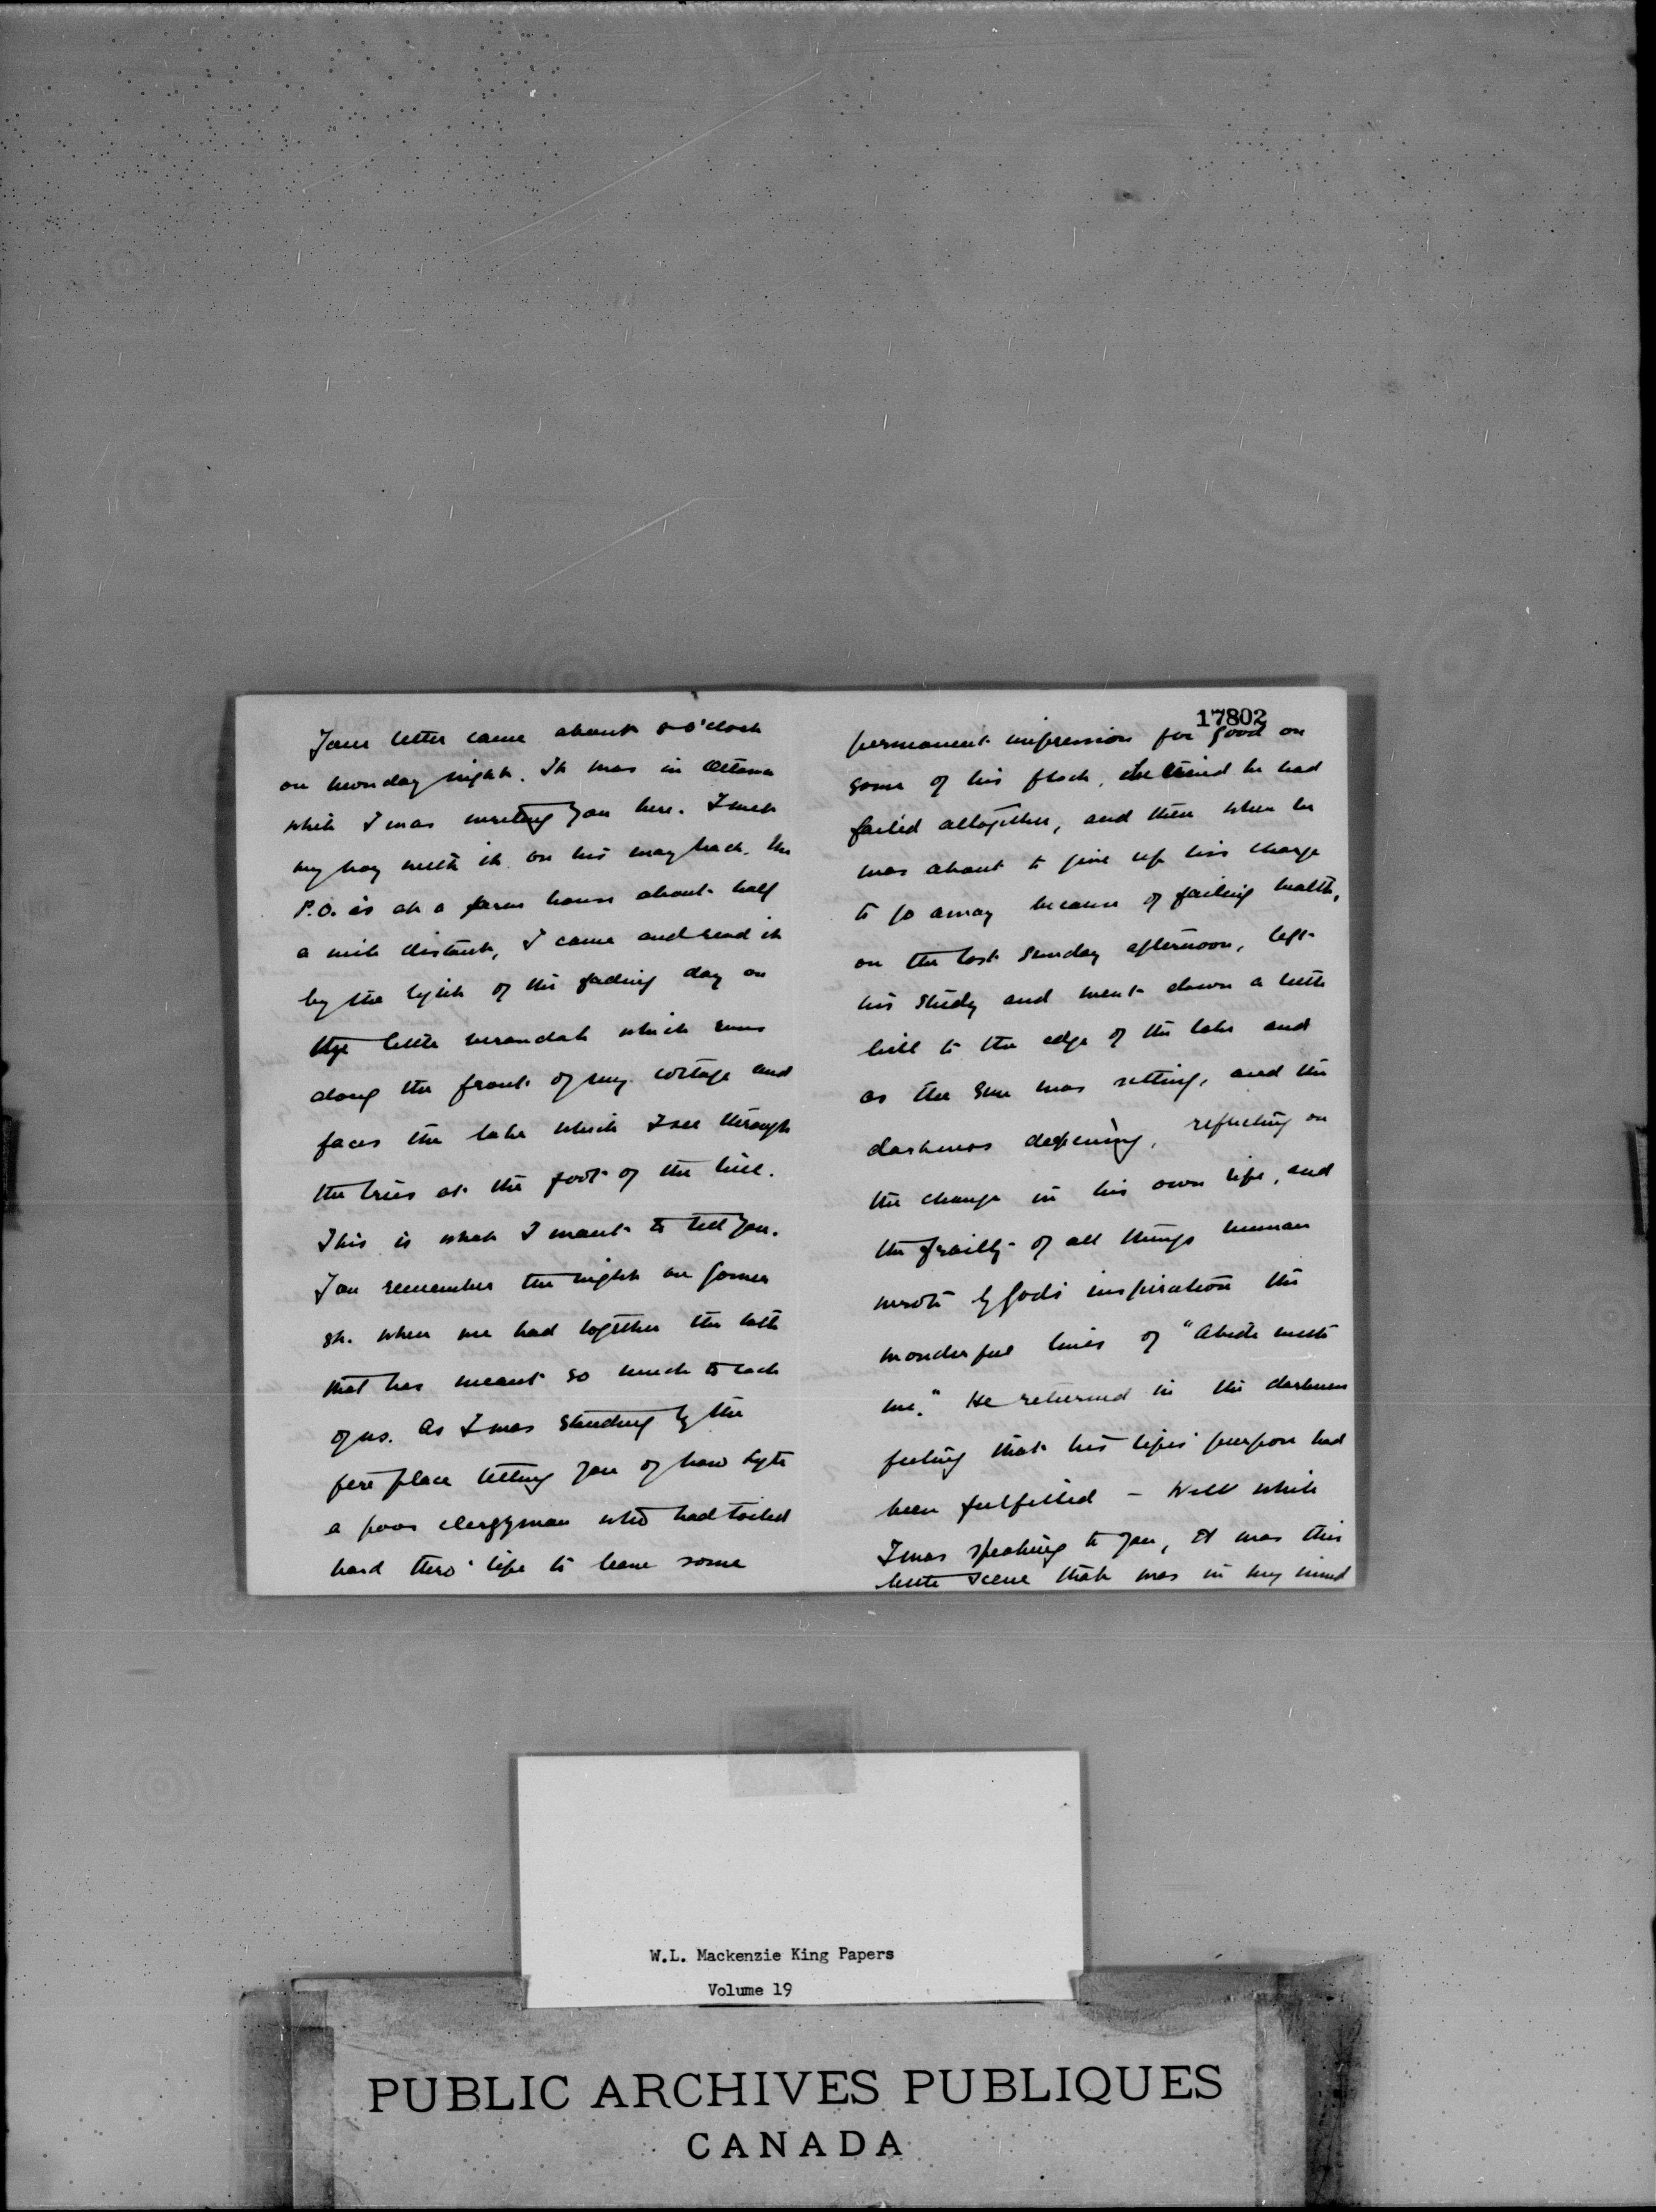 Your letter came about 8 o'clock
on Monday night. It was in Ottawa
while I was writing you here. I met
my boy with it on his way back. The
P.O. is at a farm house about half
a mile distant, I came and read it
by the light of the fading day on
the little verandah which runs
along the front of my cottage and
faces the lake which I see through
the trees at the foot of the hill.
This is what I want to tell you.
You remember the night on Somer
st. when we had together the talk
that has meant so much to each
of us. As I was standing by the
fire place telling you of how Lyte
a poor clergyman who had toiled
hard thro' life to leave some
17802
permanent impression for good on
some of his flock, he had
failed altogether, and then when he
was about to give up his charge
to go away because of failing health,
on the last Sunday afternoon, left
his study and went down a little
hill to the edge of the lake and
as the sun was setting, and the
darkness deepening, reflecting on
the change in his own life, and
the frailty of all things human
wrote by God's inspiration the
wonderful lines of "Abide with
me." He returned in the darkness
feeling that his life's purpose had
been fulfilled – Well while
I was speaking to you, it was this
little scene that was in my mind
W.L. Mackenzie King Papers
Volume 19
PUBLIC ARCHIVES PUBLIQUES
CANADA